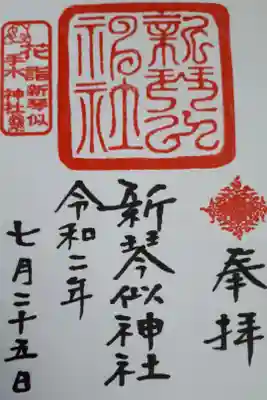 奉拝
新琴似神社
令和二年
七月二十五日
新琴似
神社
花詣新琴似
手水神社